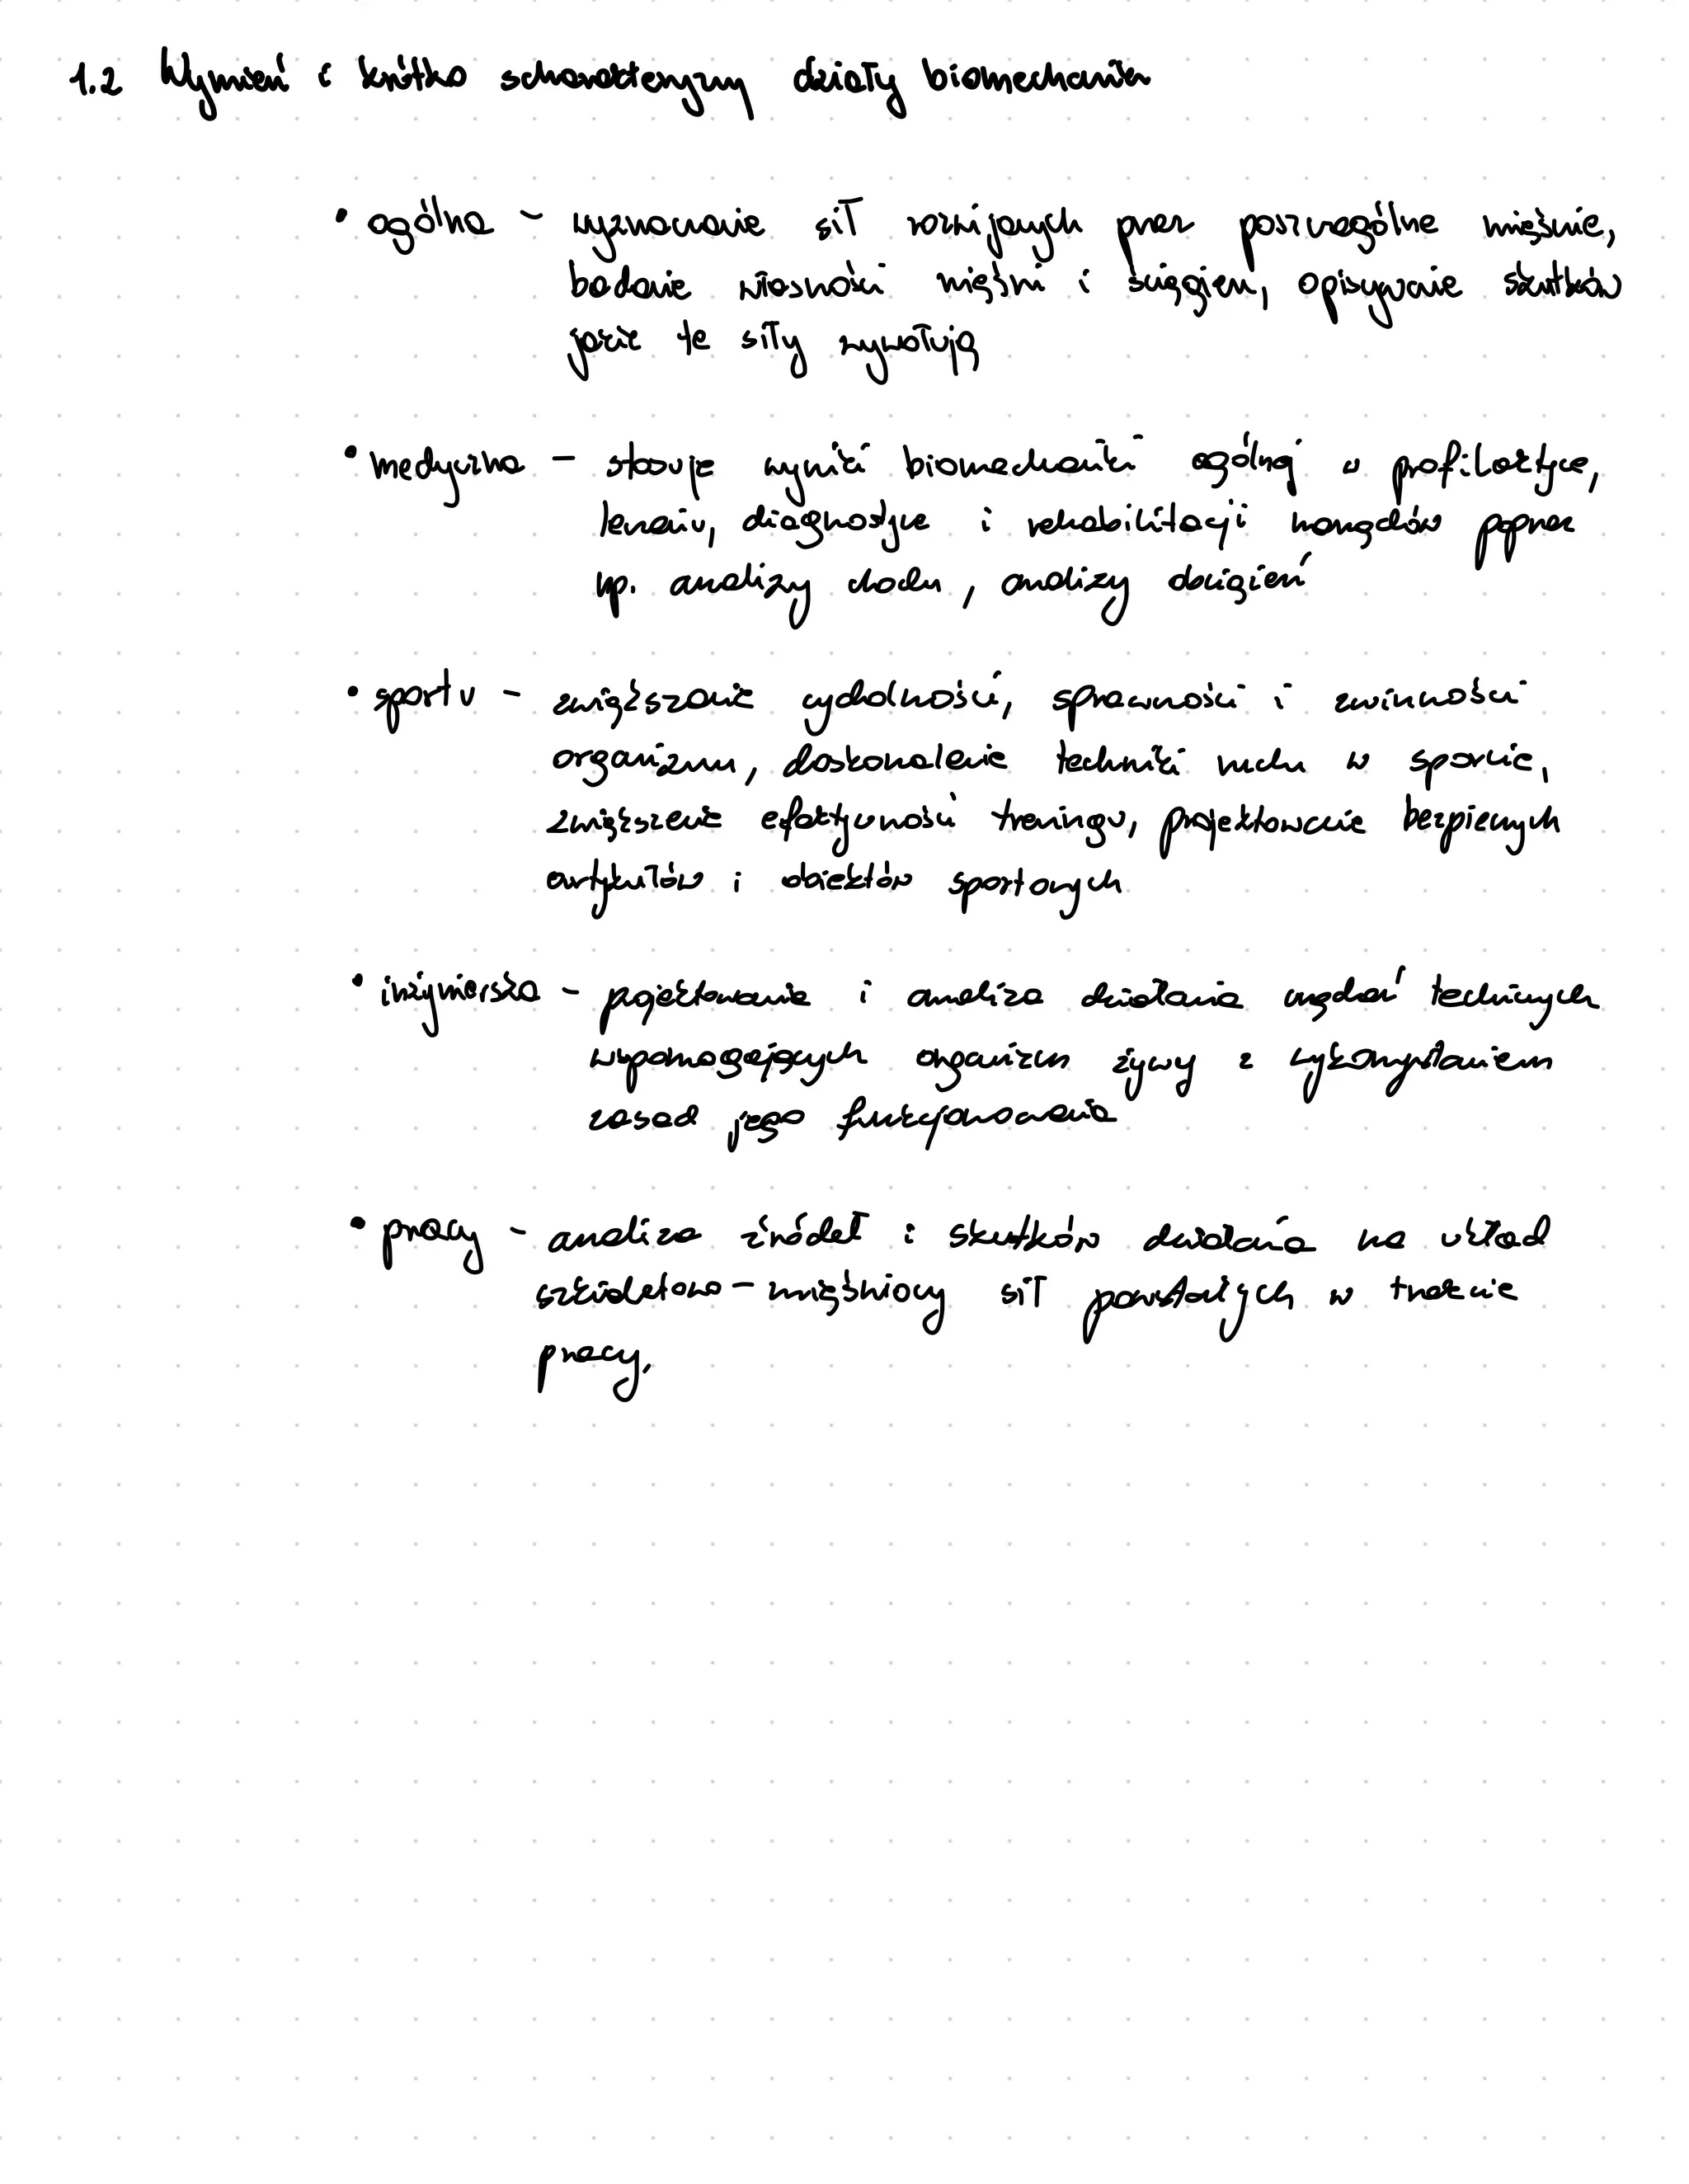 1.2 Wymień i krótko scharakteryzuj działy biomechaniki
• ogólna - wyznaczanie sił rozwijanych przez poszczególne mięśnie,
badanie własności mięśni i ścięgien, opisywanie skutków
jakie te siły wywołują
• medyczna - stosuje wyniki biomechaniki ogólnej w profilaktyce,
leczeniu, diagnostyce i rehabilitacji narządów poprzez
np. analizy chodu, analizy obciążeń
• sportu - zwiększanie wydolności, sprawności i zwinności
organizmu, doskonalenie techniki ruchu w sporcie,
zwiększenie efektywności treningu, projektowanie bezpiecznych
artykułów i obiektów sportowych
• inżynierska - projektowanie i analiza działania urządzeń technicznych
wspomagających organizm żywy z wykorzystaniem
zasad jego funkcjonowania
• pracy - analiza źródeł i skutków działania na układ
szkieletowo-mięśniowy sił powstałych w trakcie
pracy.